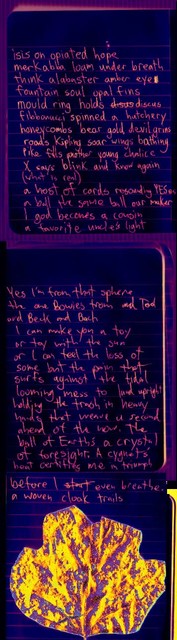 isis on opiated hope
merkabba loam under breath
think alabaster amber eyes
fountain soul opal fins
mould ring holds discus
fibbonacci spinned a hatchery
honeycombs bear gold devil grins
roads Kipling soar wings bathing
like this another young chalice
X says blink and know again
(what is real)
a host of cords resounding YESes
a ball the same ball our maker
I god becomes a cousin
a favorite uncles light
Yes I'm from that sphere
the one Bowies from and Tod
and Beck and Bach
I can make you a toy
or toy with the sun
or I can feel the loss of
some but the pain that
surfs against the tidal
looming mess to land upright
holding the trash in heavy
hands that weren't a second
ahead of the bow. The
ball of Earth's a crystal
of foresight. A cygnets
beat certifies me a triumph
before I even breathe.
a woven cloak trails